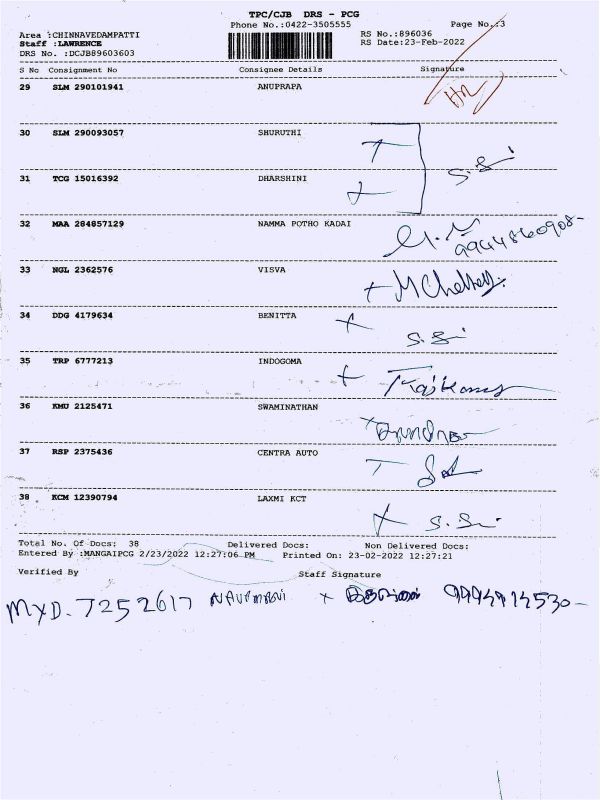 TPC/CJB DRS - PCG
Phone No.:0422-3505555 Page No.:3
Area :CHINNAVEDAMPATTI RS No.:896036
Staff :LAWRENCE RS Date:23-Feb-2022
DRS No. :DCJB89603603
S No Consignment No Consignee Details Signature
29 SLM 290101941 ANUPRAPA
30 SLM 290093057 SHURUTHI
31 TCG 15016392 DHARSHINI
S.Sri
32 MAA 284857129 NAMMA POTHO KADAI
9944860908-
33 NGL 2362576 VISVA
34 DDG 4179634 BENITTA
S.Sri
35 TRP 6777213 INDOGOMA
36 KMU 2125471 SWAMINATHAN
37 RSP 2375436 CENTRA AUTO
38 KCM 12390794 LAXMI KCT
S.Sri
Total No. Of Docs: 38 Delivered Docs: Non Delivered Docs:
Entered By :MANGAIPCG 2/23/2022 12:27:06 PM Printed On: 23-02-2022 12:27:21
Verified By Staff Signature
MYD. 7252617